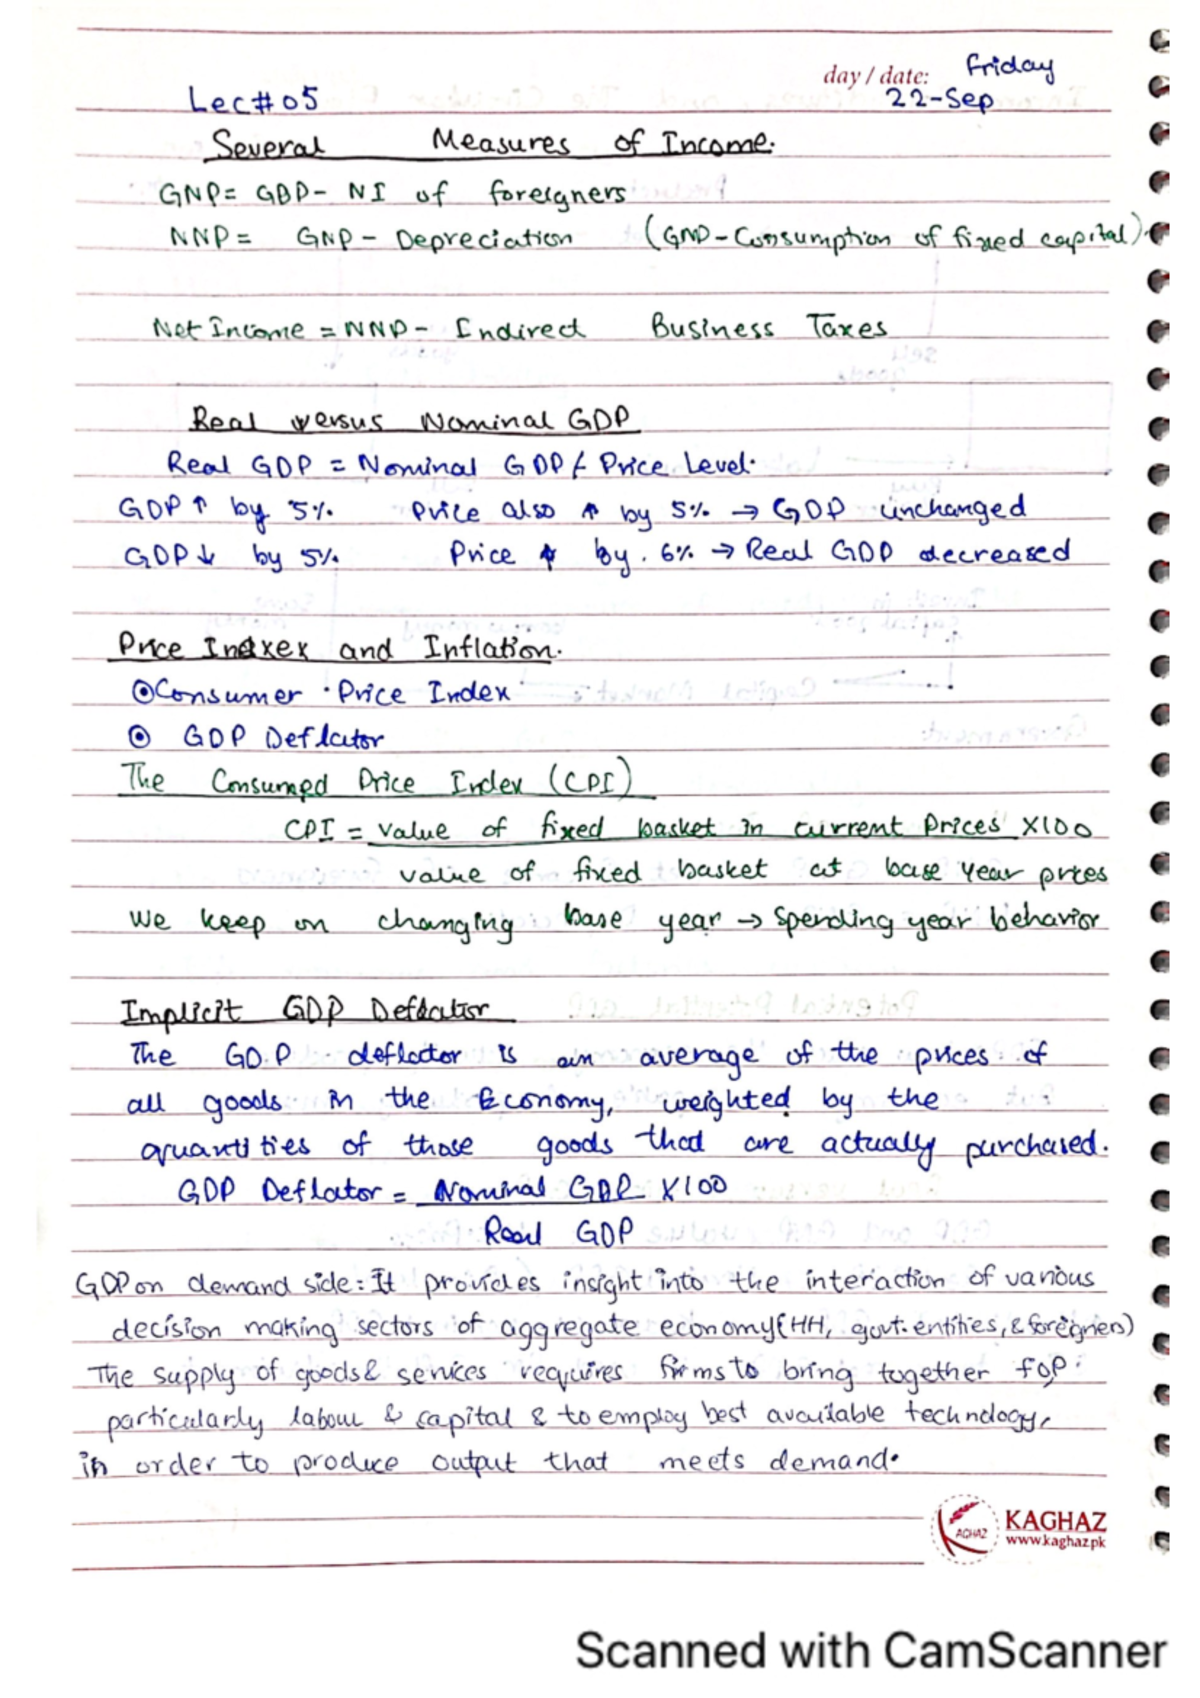 day / date: Friday
22-Sep
Lec#05
Several Measures of Income.
GNP= GDP- NI of foreigners
NNP= GNP- Depreciation (GNP-Consumption of fixed capital).
Net Income = NNP- Indirect Business Taxes
Real versus Nominal GDP
Real GDP = Nominal GDP / Price Level.
GDP↑ by 5% Price also ↑ by 5% → GDP unchanged
GDP↓ by 5% Price by. 6% → Real GDP decreased
Price Indexex and Inflation.
Consumer Price Index
GDP Deflator
The Consumed Price Index (CPI)
CPI = value of fixed basket in current Prices X100
value of fixed basket at base year prices
We keep on changing base year → spending year behavior
Implicit GDP Deflator
The GDP deflator is an average of the prices of
all goods in the Economy, weighted by the
quantities of those goods that are actually purchased.
GDP Deflator = Nominal GDP X100
Real GDP
GDP on demand side: It provides insight into the interaction of various
decision making sectors of aggregate economy (HH, govt. entities, & foreigners)
The supply of goods & services requires firms to bring together FOP.
particularly labour & capital & to employ best available technology,
in order to produce output that meets demand.
AGHAZ
KAGHAZ
www.kaghaz.pk
Scanned with CamScanner